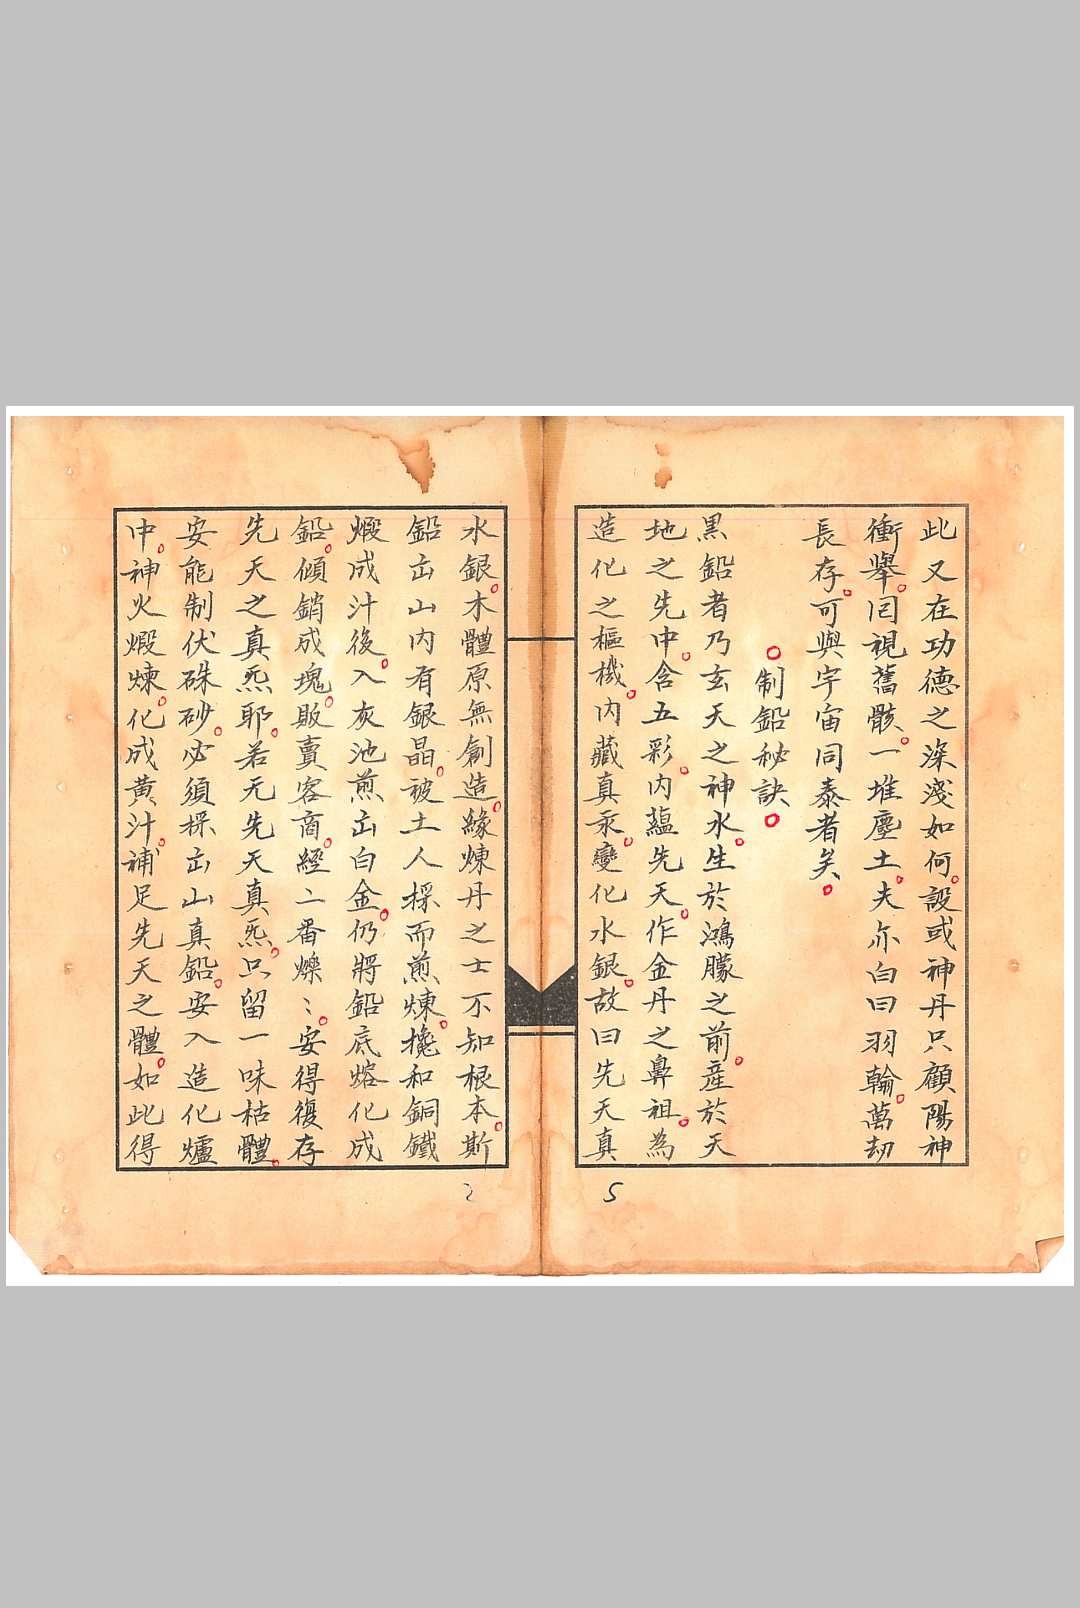 此又在功德之深淺如何。設或神丹只顧陽神
衝舉。囘視舊骸。一堆塵土。夫亦白曰羽輪。萬劫
長存。可與宇宙同泰者矣。
○制鉛秘訣○
黑鉛者乃玄天之神水。生於鴻朦之前。產於天
地之先。中含五彩。內蘊先天。作金丹之鼻祖。為
造化之樞機。內藏真汞。變化水銀。故曰先天真
水銀。木體原無創造。緣煉丹之士不知根本。斯
鉛出山內有銀晶。被土人採而煎煉。攙和銅鐵
煅成汁後。入灰池煎出白金。仍將鉛底熔化成
鉛。傾銷成塊。販賣客商。經二番爍〻。安得復存
先天之真炁耶。若无先天真炁。只留一味枯體。
安能制伏硃砂。必須採出山真鉛。安入造化爐
中。神火煅煉。化成黃汁。補足先天之體。如此得
5
2